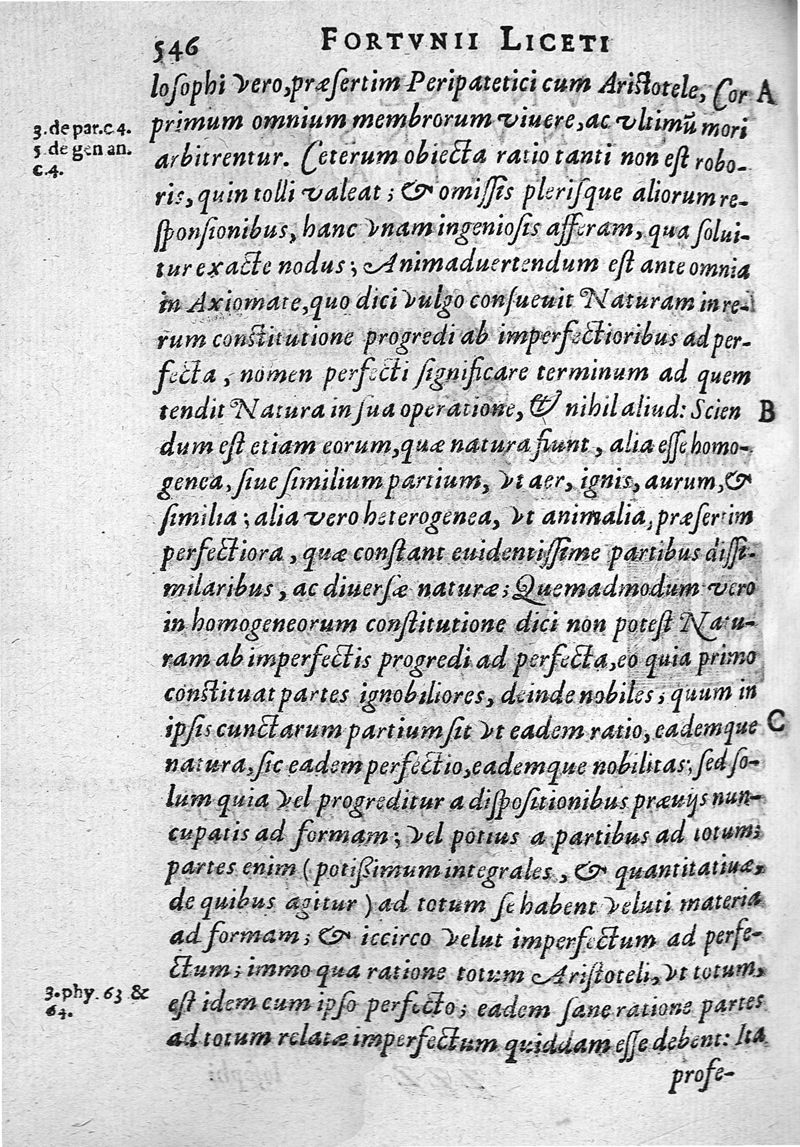 546 FORTVNII LICETI
losophi vero, præsertim Peripatetici cum Aristotele, Cor A
3. de par. c 4. primum omnium membrorum viuere, ac vltimũ mori
5. de gen an. c. 4. arbitrentur. Ceterum obiecta ratio tanti non est robo-
ris, quin tolli valeat; & omissis plerisque aliorum re-
sponsionibus, hanc vnam ingeniosis afferam, qua solui-
tur exacte nodus; Animaduertendum est ante omnia
in Axiomate, quo dici vulgo consueuit Naturam in re-
rum constitutione progredi ab imperfectioribus ad per-
fecta, nomen perfecti significare terminum ad quem
tendit Natura in sua operatione, & nihil aliud: Scien B
dum est etiam eorum, quæ natura fiunt, alia esse homo-
genea, siue similium partium, vt aer, ignis, aurum, &
similia; alia vero heterogenea, vt animalia, præsertim
perfectiora, quæ constant euidentissime partibus dissi-
milaribus, ac diuersæ naturæ; Quemadmodum vero
in homogeneorum constitutione dici non potest Natu-
ram ab imperfectis progredi ad perfecta, eo quia primo
constituat partes ignobiliores, deinde nobiles; quum in
ipsis cunctarum partium sit vt eadem ratio, eademque C
natura, sic eadem perfectio, eademque nobilitas; sed so-
lum quia vel progreditur a dispositionibus præuijs nun-
cupatis ad formam; vel potius a partibus ad totum;
partes enim (potißimum integrales, & quantitatiuæ,
de quibus agitur) ad totum se habent veluti materia
ad formam; & iccirco velut imperfectum ad perfe-
ctum; immo qua ratione totum Aristoteli, vt totum,
3. phy. 63 & 64. est idem cum ipso perfecto; eadem sane ratione partes
ad totum relatæ imperfectum quiddam esse debent: Ita
profe-